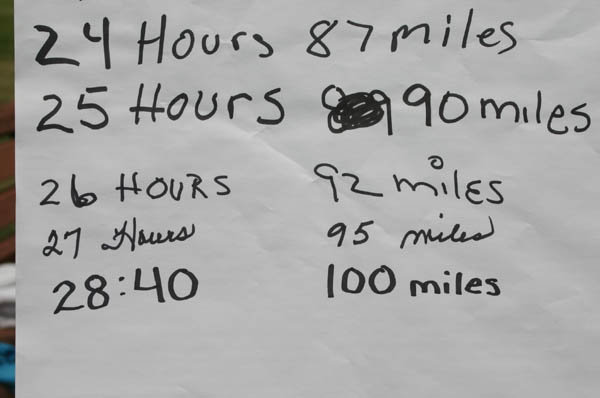 24 Hours 87 miles
25 Hours 90 miles
26 HOURS 92 miles
27 Hours 95 miles
28:40 100 miles